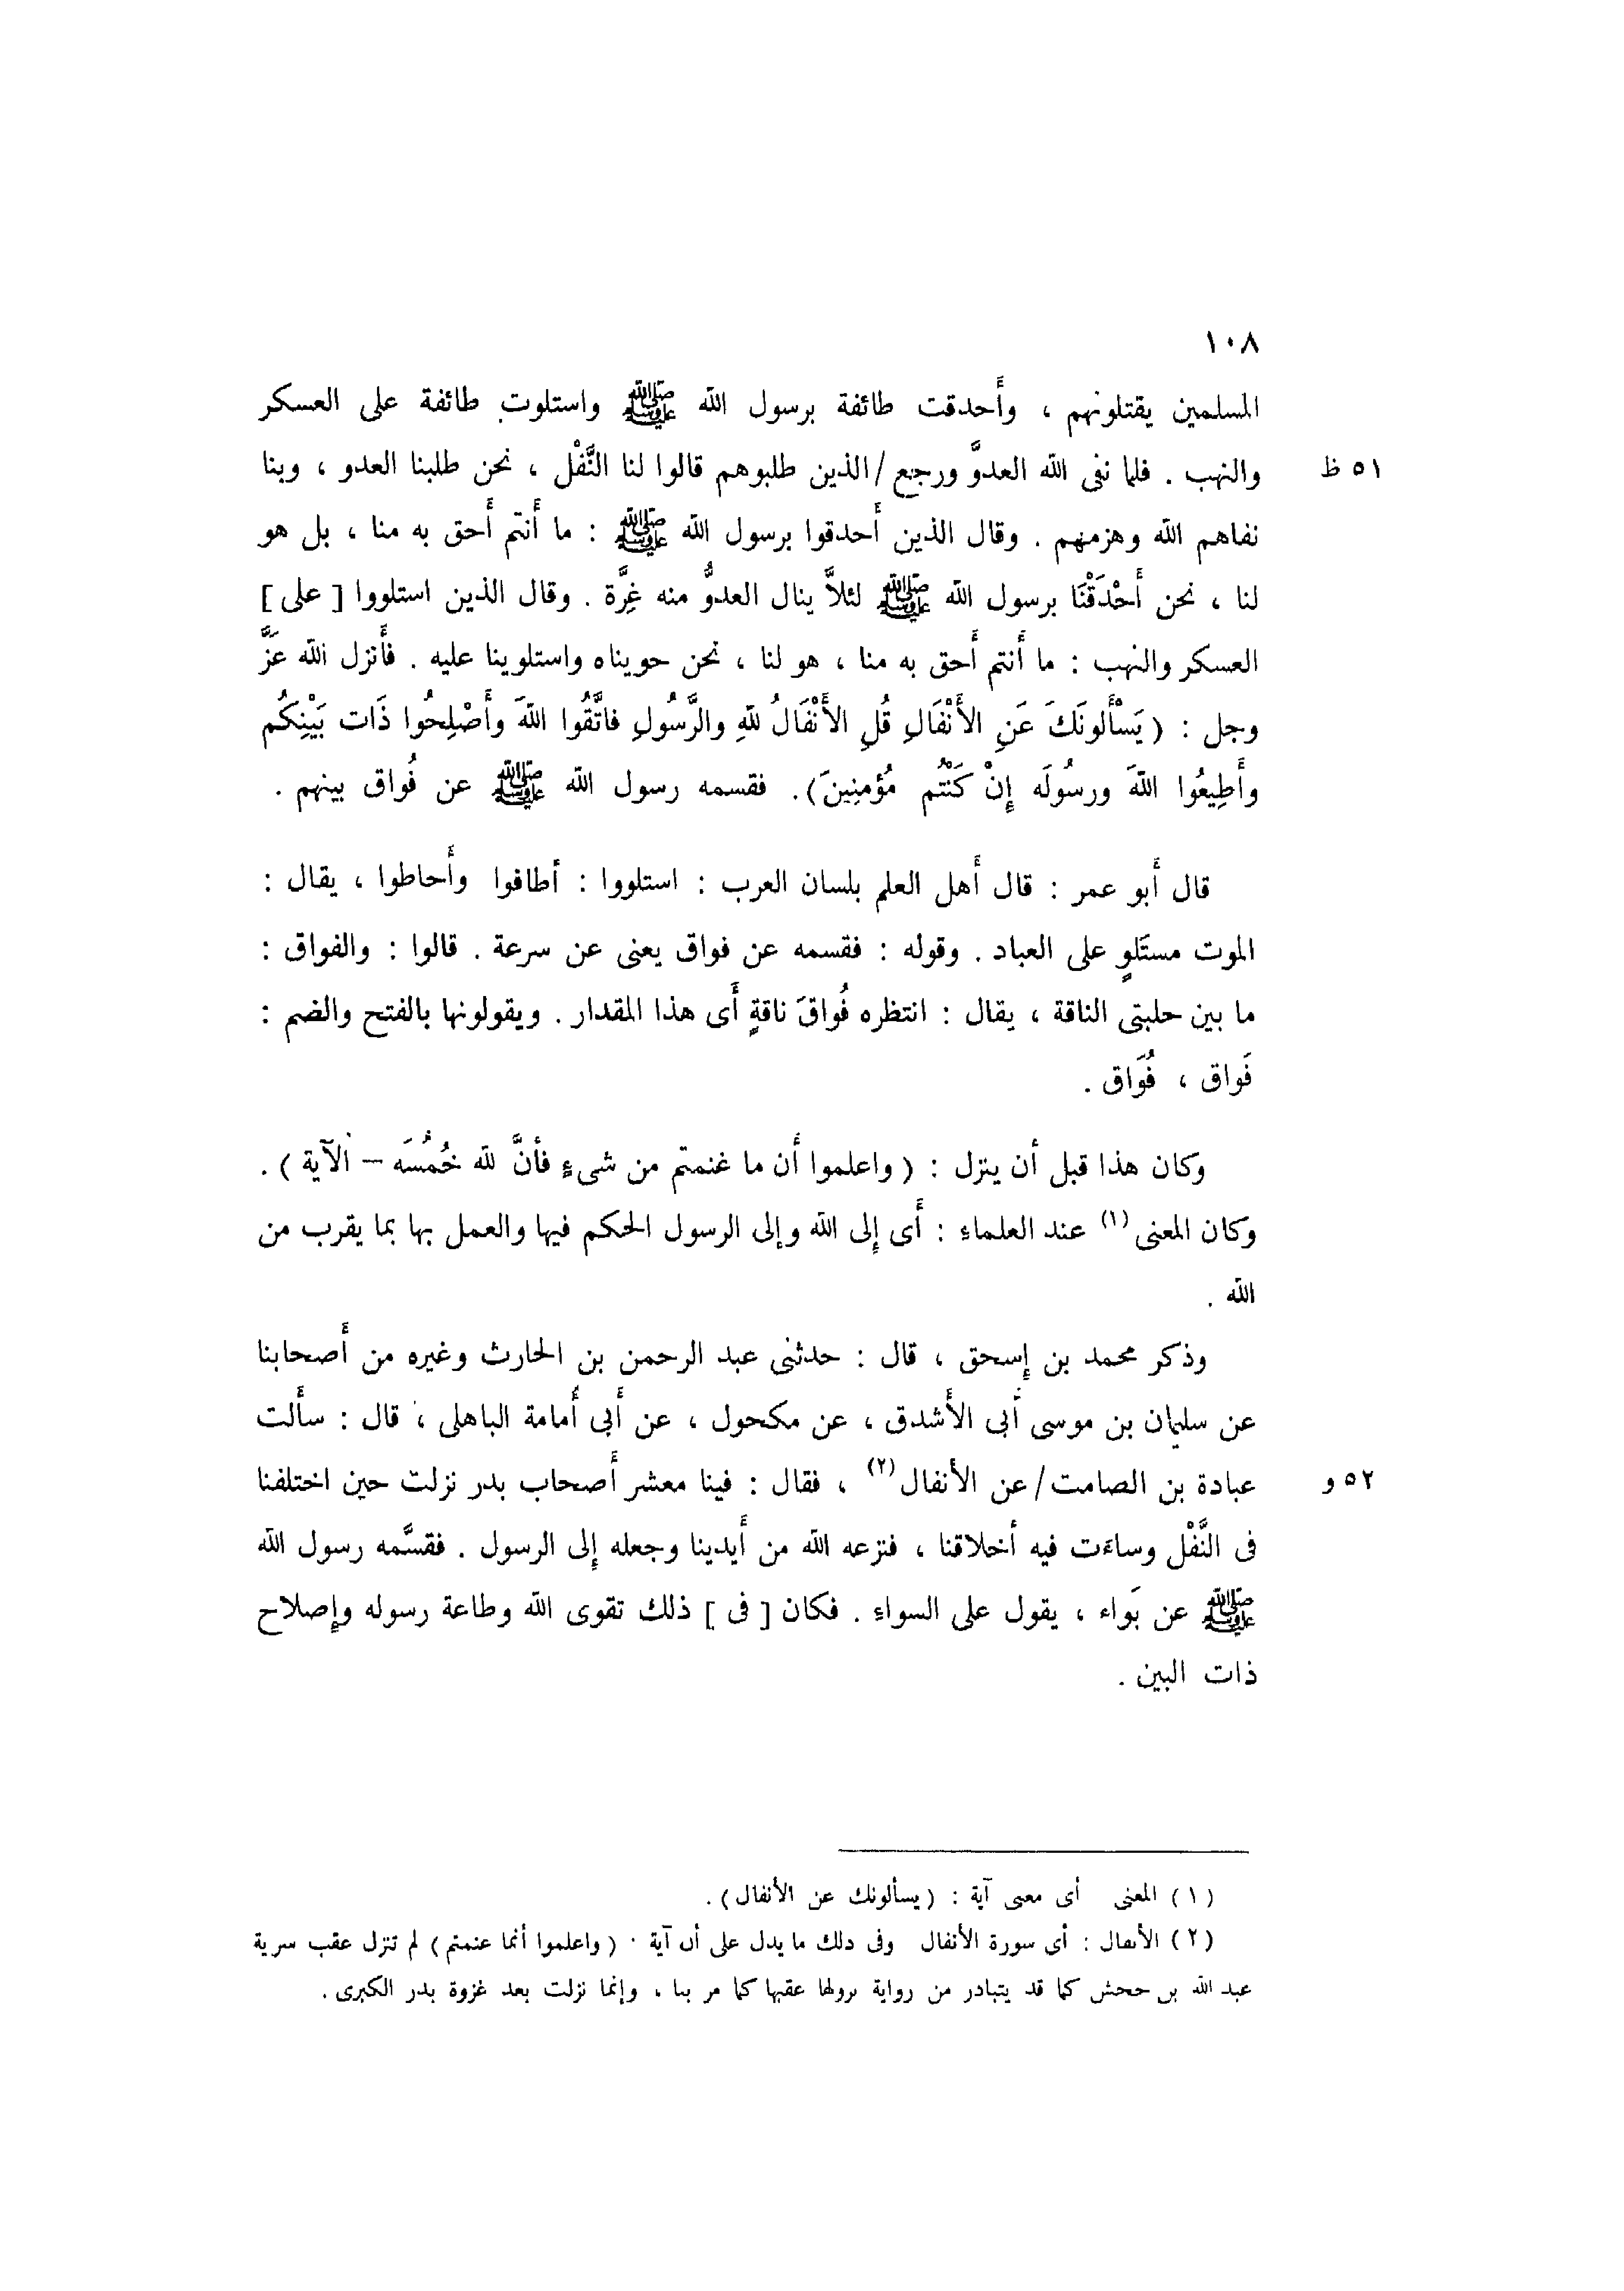 ١٠٨
المسلمين يقتلونهم ، وأَحدقت طائفة برسول الله ﷺ واستلوت طائفة على العسكر
والنهب . فلما نفى الله العدوَّ ورجع /الذين طلبوهم قالوا لنا النَّفْل ، نحن طلبنا العدو ، وبنا ٥١ ظ
نفاهم الله وهزمهم . وقال الذين أَحدقوا برسول الله ﷺ : ما أَنتم أَحق به منا ، بل هو
لنا ، نحن أَحْدَقْنَا برسول الله ﷺ لئلاَّ ينال العدوُّ منه غِرَّة . وقال الذين استلووا [ على ]
العسكر والنهب : ما أَنتم أَحق به منا ، هو لنا ، نحن حويناه واستلوينا عليه . فأَنزل الله عَزَّ
وجل : ( يَسْأَلونَكَ عَنِ الأَنْفَالِ قُلِ الأَنْفَالُ لِلّهِ والرَّسُولِ فاتَّقُوا اللهَ وأَصْلِحُوا ذَات بَيْنِكُم
وأَطِيعُوا اللهَ ورسُولَه إِنْ كَنْتُم مُؤمِنِينَ). فقسمه رسول الله ﷺ عن فُواق بينهم .
قال أَبو عمر : قال أَهل العلم بلسان العرب : استلووا : أطافوا وأَحاطوا ، يقال :
الموت مستَلوٍ على العباد . وقوله : فقسمه عن فواق يعنى عن سرعة . قالوا : والفواق :
ما بين حلبتى الناقة ، يقال : انتظره فُواقَ ناقةٍ أَى هذا المقدار . ويقولونها بالفتح والضم :
فَواق ، فُوَاق .
وكان هذا قبل أن ينزل : ( واعلموا أَن ما غنمتم من شىءٍ فأنَّ لله خُمُسَه – الآية ) .
وكان المعنى (١) عند العلماء : أَى إِلى الله وإلى الرسول الحكم فيها والعمل بها بما يقرب من
الله .
وذكر محمد بن إسحق ، قال : حدثنى عبد الرحمن بن الحارث وغيره من أَصحابنا
عن سليمان بن موسى أبى الأَشدق ، عن مكحول ، عن أَبى أُمامة الباهلى ، قال : سأَلت
عبادة بن الصامت/عن الأنفال (٢) ، فقال : فينا معشر أَصحاب بدر نزلت حين اختلفنا ٥٢ و
فى النَّفْل وساءَت فيه أخلاقنا ، فنزعه الله من أَيدينا وجعله إِلى الرسول . فقسَّمه رسول الله
ﷺ عن بَواء ، يقول على السواءِ . فكان [ فى ] ذلك تقوى الله وطاعة رسوله وإِصلاح
ذات البين .
(١) المعنى أى معنى آية : (يسألونك عن الأنفال) .
(٢) الأنفال : أى سورة الأنفال وفى ذلك ما يدل على أن آية . (واعلموا أنما غنمتم) لم تنزل عقب سرية
عبد الله بن جحش كما قد يتبادر من رواية نزولها عقبها كما مر بنا ، وإنما نزلت بعد غزوة بدر الكبرى .